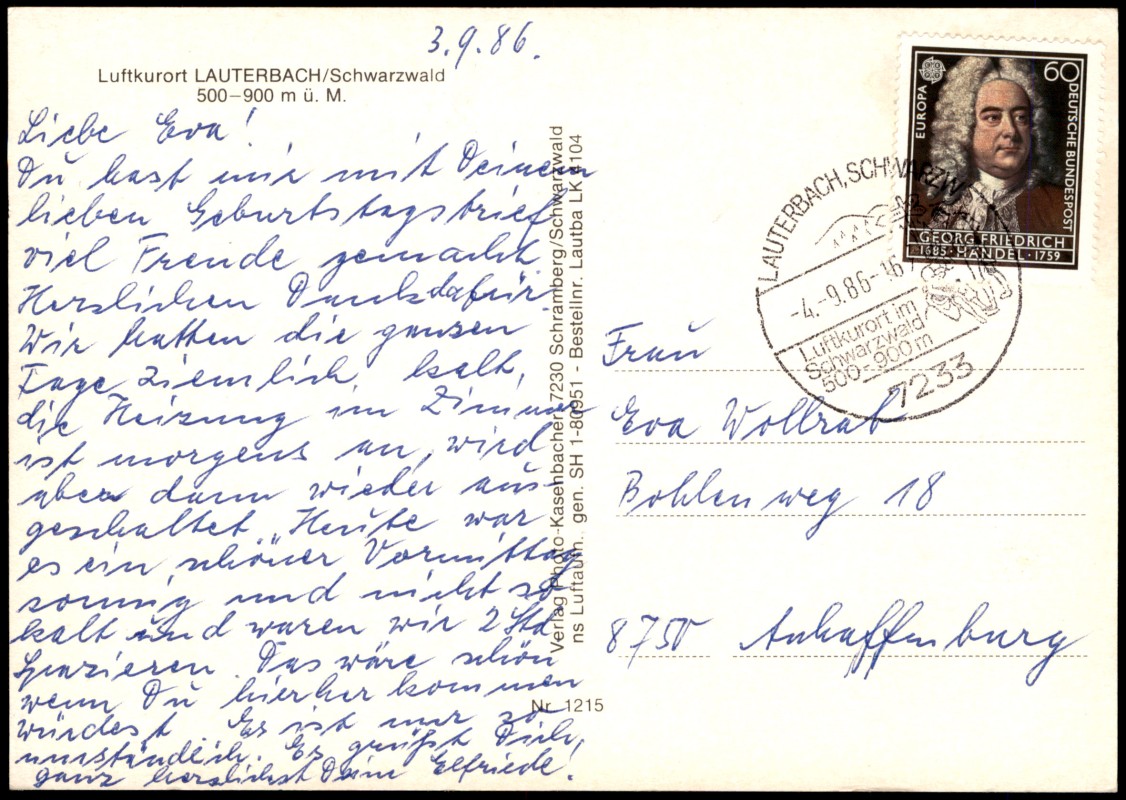 3.9.86.
Luftkurort LAUTERBACH/Schwarzwald
500–900 m ü. M.
Liebe Eva!
Du hast mir mit Deinem
lieben Geburtstagsbrief
viel Freude gemacht
Herzlichen Dank dafür
Wir hatten die ganzen
Tage ziemlich kalt,
die Heizung im Zimmer
ist morgens an, wird
aber dann wieder aus-
geschaltet. Heute war
es ein schöner Vormittag
sonnig und nicht so
kalt und waren wir 2 Std
spazieren. Das wäre schön
wenn Du hierher kommen
würdest. Es ist nur so
umständlich. Es grüßt Dich,
ganz herzlichst Deine Elfriede!
Verlag Photo-Kasenbacher, 7230 Schramberg/Schwarzwald
ns Luftaufn. gen. SH 1-80951 - Bestellnr. Lautba LK 4104
Nr. 1215
EUROPA
60
DEUTSCHE BUNDESPOST
GEORG FRIEDRICH
1685 · HÄNDEL · 1759
LAUTERBACH, SCHWARZW
-4.-9.86-16
Luftkurort im
Schwarzwald
500-900m
7233
Frau
Eva Wollrab
Bohlenweg 18
8750 Aschaffenburg